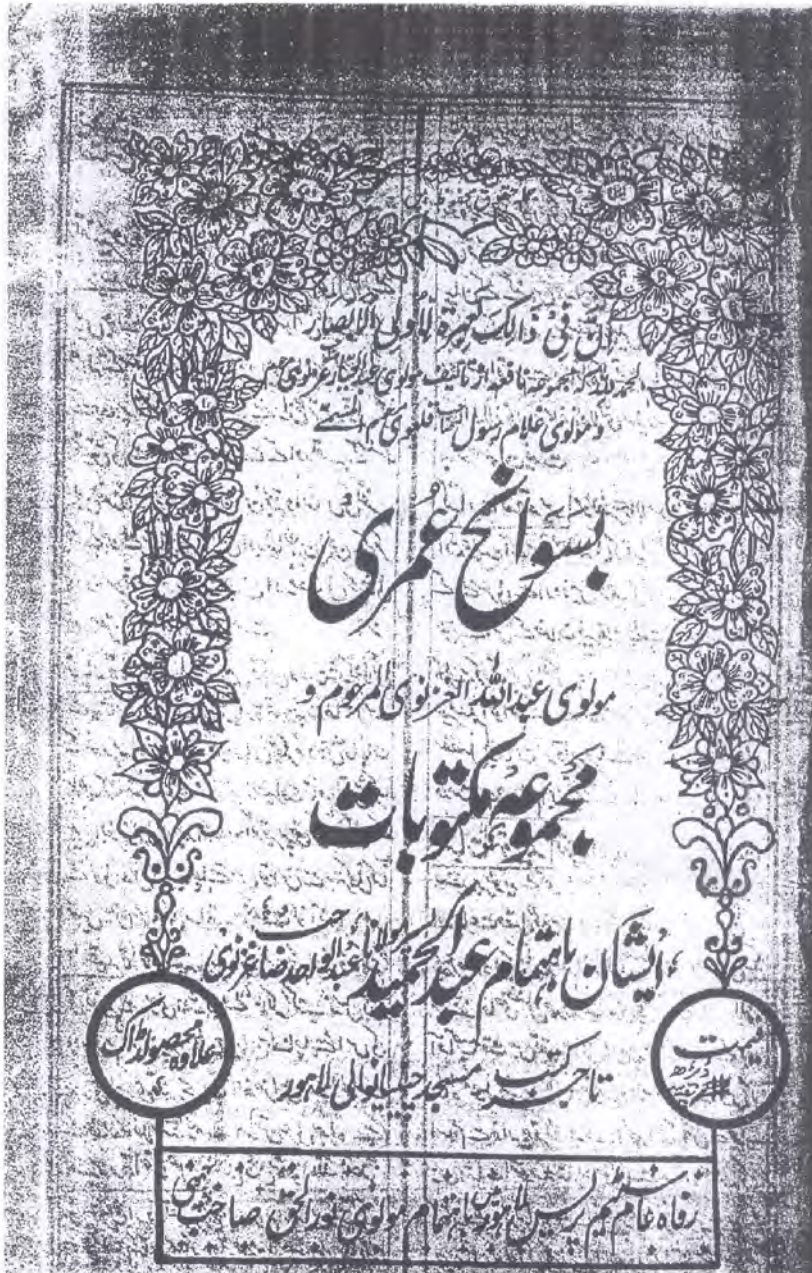 ان فی ذالک لعبرۃ لاولی الابصار
الحمد للہ کہ مجموعہ نافعہ از تالیف مولوی عبدالجبار غزنوی
و مولوی غلام رسول قلعوی
بسوانح عُمری
مولوی عبداللہ الغزنوی المرحوم و
مجموعہ مکتوبات
ایشان باہتمام عبدالحمید پسر مولانا عبدالواحد صاحب غزنوی
تاجر کتب مسجد چینیانوالی لاہور
قیمت
علاوہ محصولڈاک
رفاہ عام سٹیم پریس لاہور میں باہتمام مولوی نورالحق صاحب